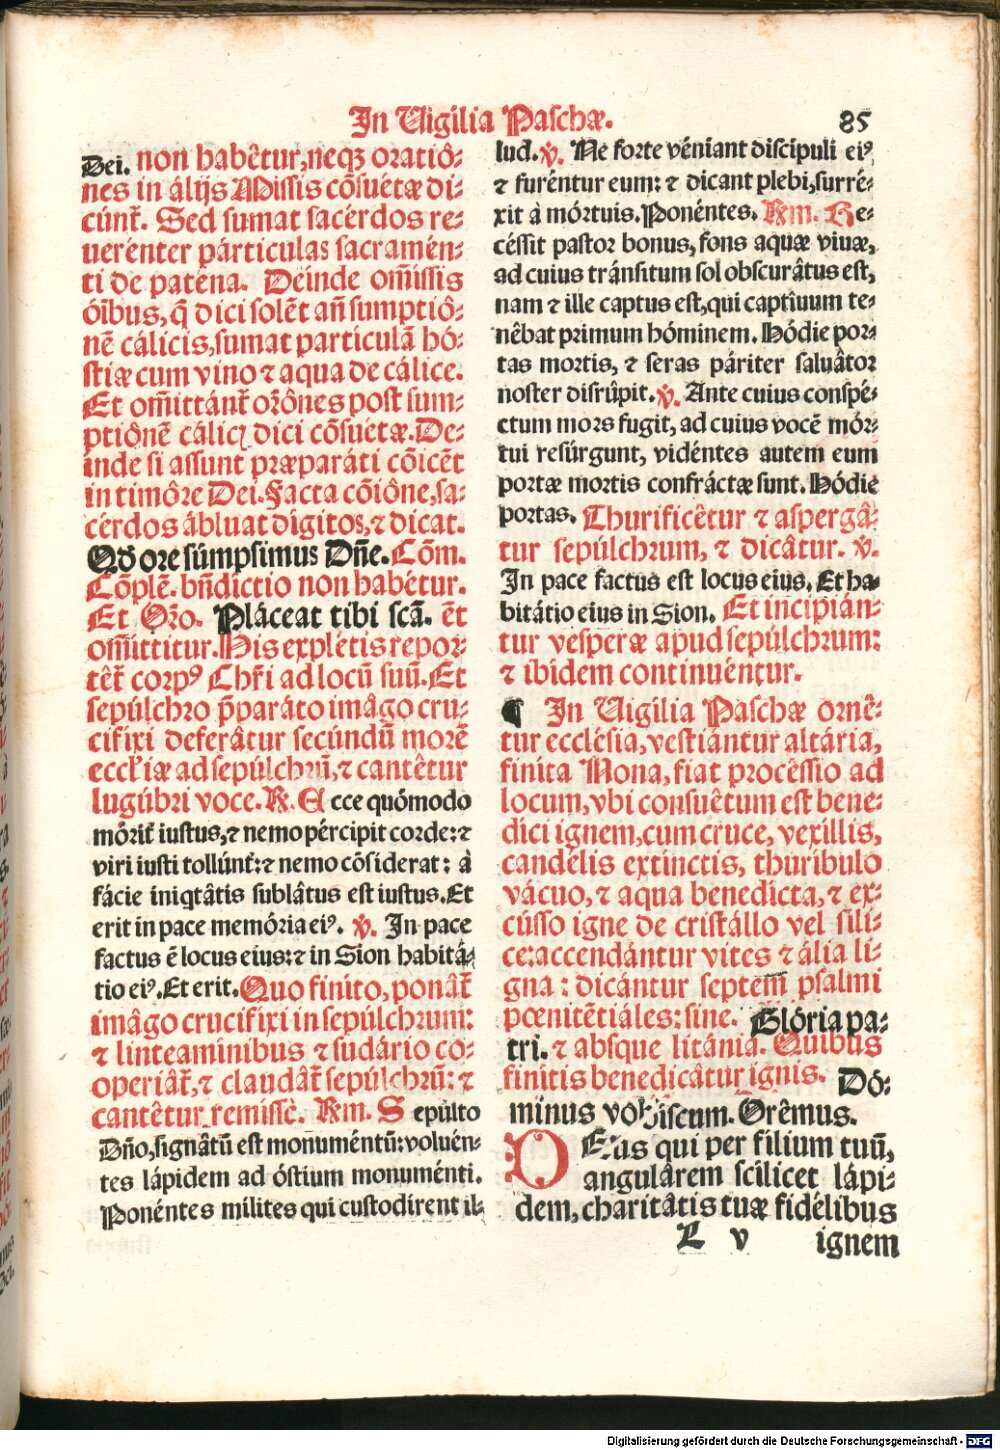 In Vigilia Paschæ. 85
Dei. non habêtur, neqꝫ oratiô⸗
nes in álijs Missis cõsuétæ di⸗
cúnt᷑. Sed sumat sacérdos re⸗
uerénter párticulas sacramén⸗
ti de paténa. Deínde om̃issis
óíbus, q̃ dici solẽt añ sumptiô⸗
nẽ cálicis, sumat particulã hó⸗
stiæ cum vino ⁊ aqua de cálice.
Et om̃ittánt᷑ orõnes post sum⸗
ptiônẽ cálicꝭ dici cõsuétæ. De⸗
índe si assunt præparáti cõicẽt
in timôre Dei. Facta cõiône, sa⸗
cérdos ábluat dígitos, ⁊ dicat.
Qd̃ ore súmpsimus Dñe. Cõm.
Cõplẽ. bñdictio non habétur.
Et Orõ. Pláceat tibi scã. ẽt
om̃ittitur. His explétis repor⸗
tẽt᷑ corpꝰ Chr̃i ad locũ suũ. Et
sepúlchro p̃paráto imâgo cru⸗
cifixi deferâtur secúndũ morẽ
eccl̃iæ ad sepúlchrũ, ⁊ cantêtur
lugúbri voce. ℟. Ecce quómodo
mórit᷑ iustus, ⁊ nemo pércipit corde: ⁊
viri iusti tollúnt᷑: ⁊ nemo cõsiderat: à
fácie iniqtâtis sublâtus est iustus. Et
erit in pace memória eiꝰ. ℣. In pace
factus ẽ locus eius: ⁊ in Sion habitá⸗
tio eiꝰ. Et erit. Quo finito, ponât᷑
imâgo crucifixi in sepúlchrum:
⁊ linteamínibus ⁊ sudário co⸗
operiât᷑, ⁊ claudât᷑ sepúlchrũ: ⁊
cantêtur remissè. Rm. Sepúlto
Dño, signâtũ est monuméntũ: voluén⸗
tes lápidem ad óstium monuménti.
Ponéntes milites qui custodírent il⸗
lud. ℣. Ne forte véniant discípuli eiꝰ
⁊ furéntur eum: ⁊ dicant plebi, surré⸗
xit à mórtuis. Ponéntes. Rm. Re⸗
céssit pastor bonus, fons aquæ viuæ,
ad cuius tránsitum sol obscurâtus est,
nam ⁊ ille captus est, qui captîuum te⸗
nêbat primum hóminem. Hódie por⸗
tas mortis, ⁊ seras páriter saluâtor
noster disrûpit. ℣. Ante cuius conspé⸗
ctum mors fugit, ad cuius vocẽ mór⸗
tui resúrgunt, vidéntes autem eum
portæ mortis confráctæ sunt. Hódie
portas. Thurificêtur ⁊ aspergâ⸗
tur sepúlchrum, ⁊ dicâtur. ℣.
In pace factus est locus eius. Et ha⸗
bitátio eius in Sion. Et incipián⸗
tur vésperæ apud sepúlchrum:
⁊ ibídem continuéntur.
¶ In Vigília Paschæ ornê⸗
tur ecclésia, vestiántur altária,
finita Nona, fiat procéssio ad
locum, vbi consuêtum est bene⸗
díci ignem, cum cruce, vexíllis,
candêlis extínctis, thuríbulo
vácuo, ⁊ aqua benedícta, ⁊ ex⸗
cússo igne de cristállo vel síli⸗
ce: accendántur vites ⁊ ália li⸗
gna: dicántur septem̃ psalmi
pœnitẽtiáles: sine. Glória pa⸗
tri. ⁊ absque litánia. Quibus
finítis benedicâtur ignis. Dó⸗
minus vobíscum. Orêmus.
DEus qui per filium tuũ,
angulârem scílicet lápi⸗
dem, charitâtis tuæ fidélibus
L v ignem
Digitalisierung gefördert durch die Deutsche Forschungsgemeinschaft - DFG